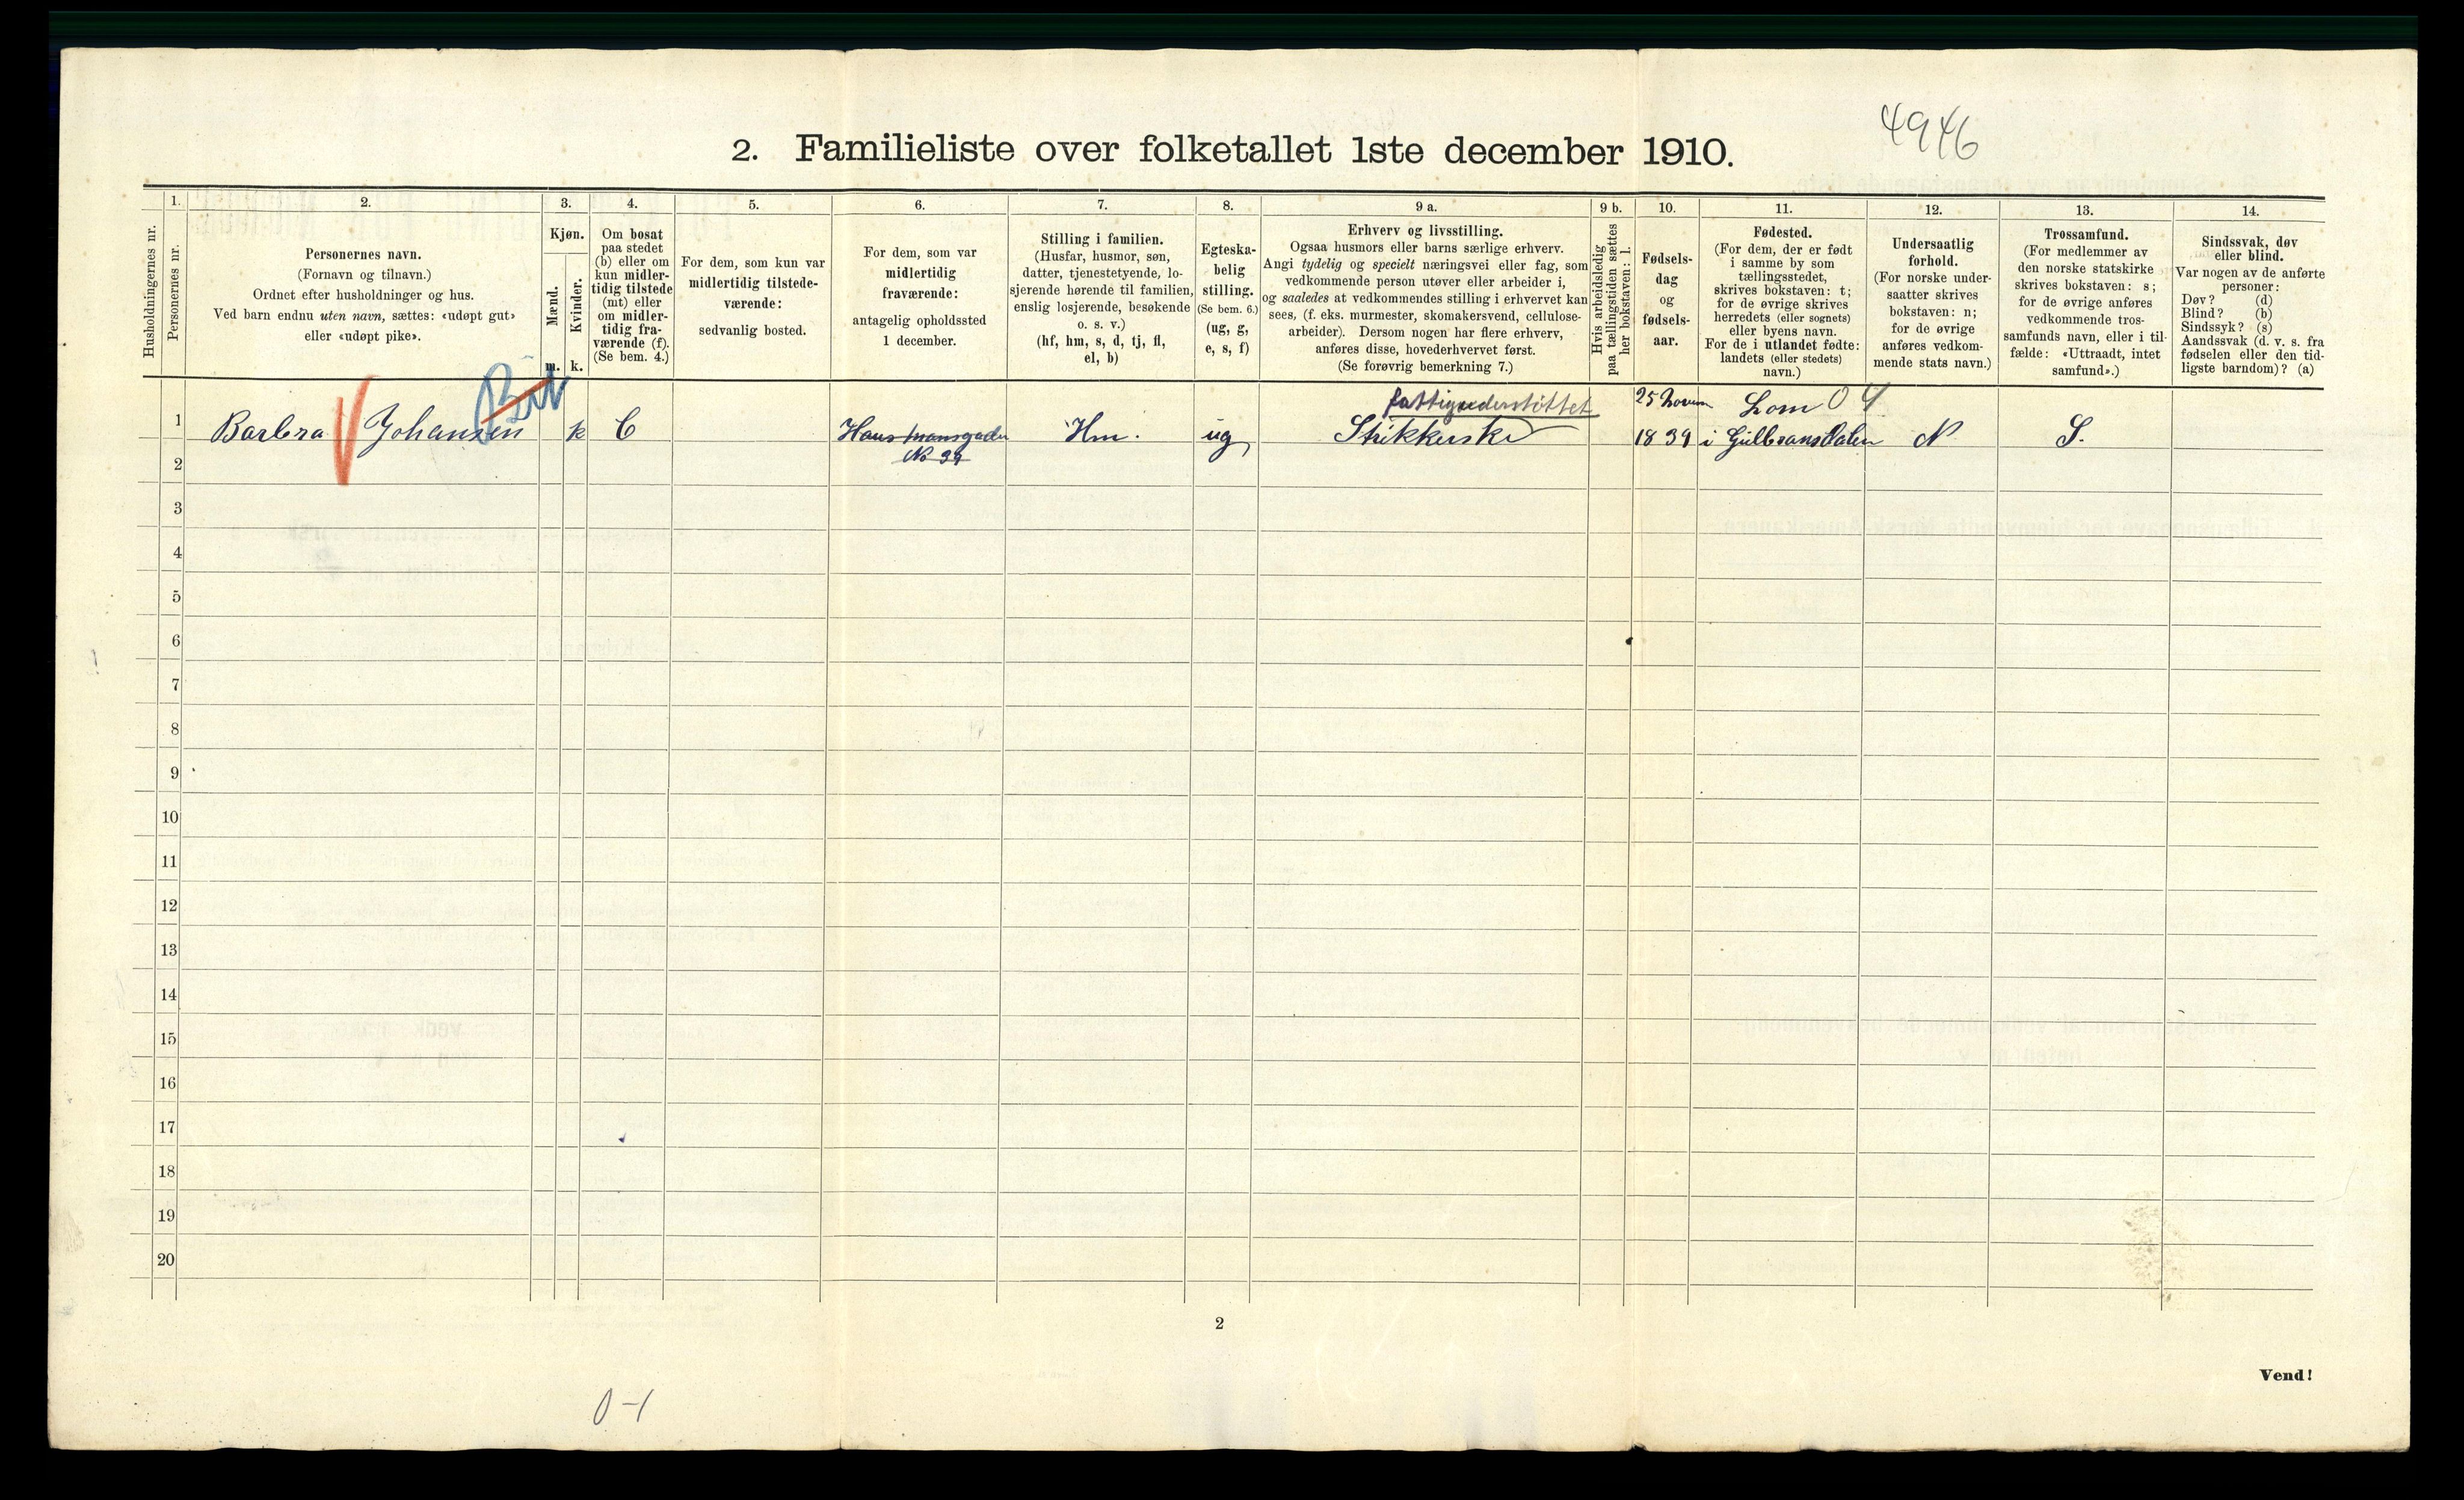 4946
2. Familieliste over folketallet 1ste december 1910.
Husholdningernes nr.
1.
Personernes nr.
2.
Personernes navn.
(Fornavn og tilnavn.)
Ordnet efter husholdninger og hus.
Ved barn endnu uten navn, sættes: «udøpt gut»
eller «udøpt pike».
3.
Kjøn.
Mænd.
m.
Kvinder.
k.
4.
Om bosat
paa stedet
(b) eller om
kun midler-
tidig tilstede
(mt) eller
om midler-
tidig fra-
værende (f).
(Se bem. 4.)
5.
For dem, som kun var
midlertidig tilstede-
værende:
sedvanlig bosted.
6.
For dem, som var
midlertidig
fraværende:
antagelig opholdssted
1 december.
7.
Stilling i familien.
(Husfar, husmor, søn,
datter, tjenestetyende, lo-
sjerende hørende til familien,
enslig losjerende, besøkende
o. s. v.)
(hf, hm, s, d, tj, fl,
el, b)
8.
Egteska-
belig
stilling.
(Se bem. 6.)
(ug, g,
e, s, f)
9 a.
Erhverv og livsstilling.
Ogsaa husmors eller barns særlige erhverv.
Angi tydelig og specielt næringsvei eller fag, som
vedkommende person utøver eller arbeider i,
og saaledes at vedkommendes stilling i erhvervet kan
sees, (f. eks. murmester, skomakersvend, cellulose-
arbeider). Dersom nogen har flere erhverv,
anføres disse, hovederhvervet først.
(Se forøvrig bemerkning 7.)
9 b.
Hvis arbeidsledig
paa tællingstiden sættes
her bokstaven: l.
10.
Fødsels-
dag
og
fødsels-
aar.
11.
Fødested.
(For dem, der er født
i samme by som
tællingsstedet,
skrives bokstaven: t;
for de øvrige skrives
herredets (eller sognets)
eller byens navn.
For de i utlandet fødte:
landets (eller stedets)
navn.)
12.
Undersaatlig
forhold.
(For norske under-
saatter skrives
bokstaven: n;
for de øvrige
anføres vedkom-
mende stats navn.)
13.
Trossamfund.
(For medlemmer av
den norske statskirke
skrives bokstaven: s;
for de øvrige anføres
vedkommende tros-
samfunds navn, eller i til-
fælde: «Uttraadt, intet
samfund».)
14.
Sindssvak, døv
eller blind.
Var nogen av de anførte
personer:
Døv? (d)
Blind? (b)
Sindssyk? (s)
Aandssvak (d. v. s. fra
fødselen eller den tid-
ligste barndom)? (a)
fattigunderstöttet 25 Lom 04
1 Barbra Johansen k Hm. ug Strikkerske 1839 i Gulbransdalen N S.
No 39
2
3
4
5
6
7
8
9
10
11
12
13
14
15
16
17
18
19
20
2
Vend!
0-1